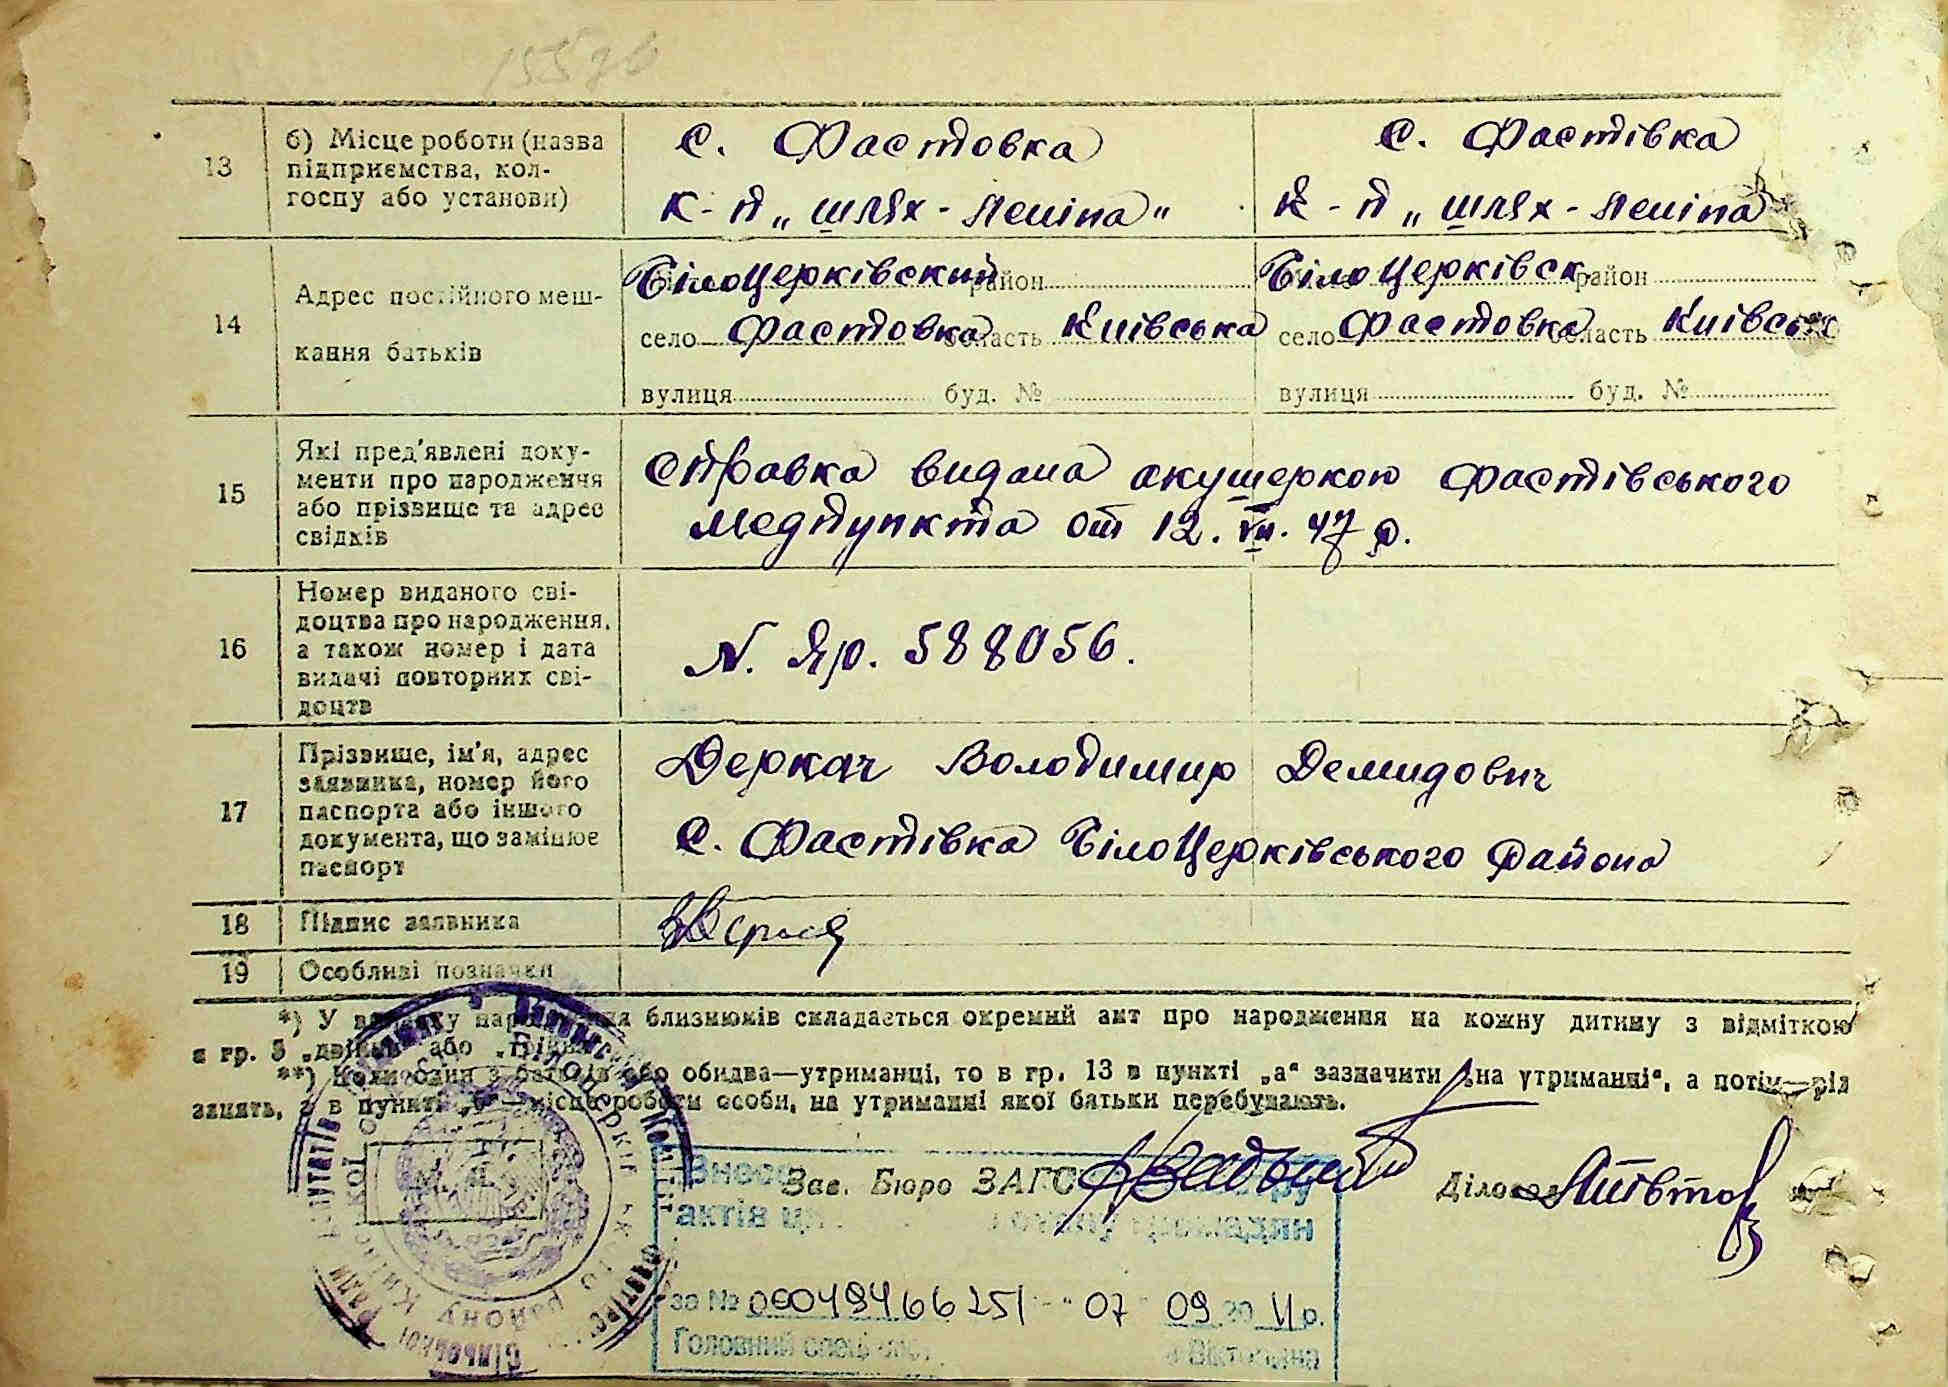 13
б) Місце роботи (назва
підприємства, кол-
госпу або установи)
с. Фастовка
к-п „шлях-Леніна"
с. Фастівка
к-п „шлях-Леніна
14
Адрес постійного меш-
кання батьків
БілоЦерківский район
село Фастовка область Київська
вулиця буд. №
БілоЦерківск район
село Фастовка область Київська
вулиця буд. №
15
Які пред'явлені доку-
менти про народження
або прізвище та адрес
свідків
Справка видана акушеркою Фастівського
медпункта от 12. VII. 47 р.
16
Номер виданого сві-
доцтва про народження,
а також номер і дата
видачі повторних сві-
доцтв
N. Яр. 588056.
17
Прізвище, ім'я, адрес
заявника, номер його
паспорта або іншого
документа, що замінює
паспорт
Деркач Володимир Демидович
с. Фастівка БілоЦерківського района
18
Підпис заявника
19
Особливі позначки
*) У випадку народження близнюків складається окремий акт про народження на кожну дитину з відміткою
в гр. 5 „двійня" або „трійня".
**) Коли один з батьків або обидва—утриманці, то в гр. 13 в пункті „а" зазначити „на утриманні", а потім—рід
занять, а в пункті „б"—місце роботи особи, на утриманні якої батьки перебувають.
Зав. Бюро ЗАГС
Діловод
актів громадян
за № 00049466251 - "07 09 20 11 р.
Головний